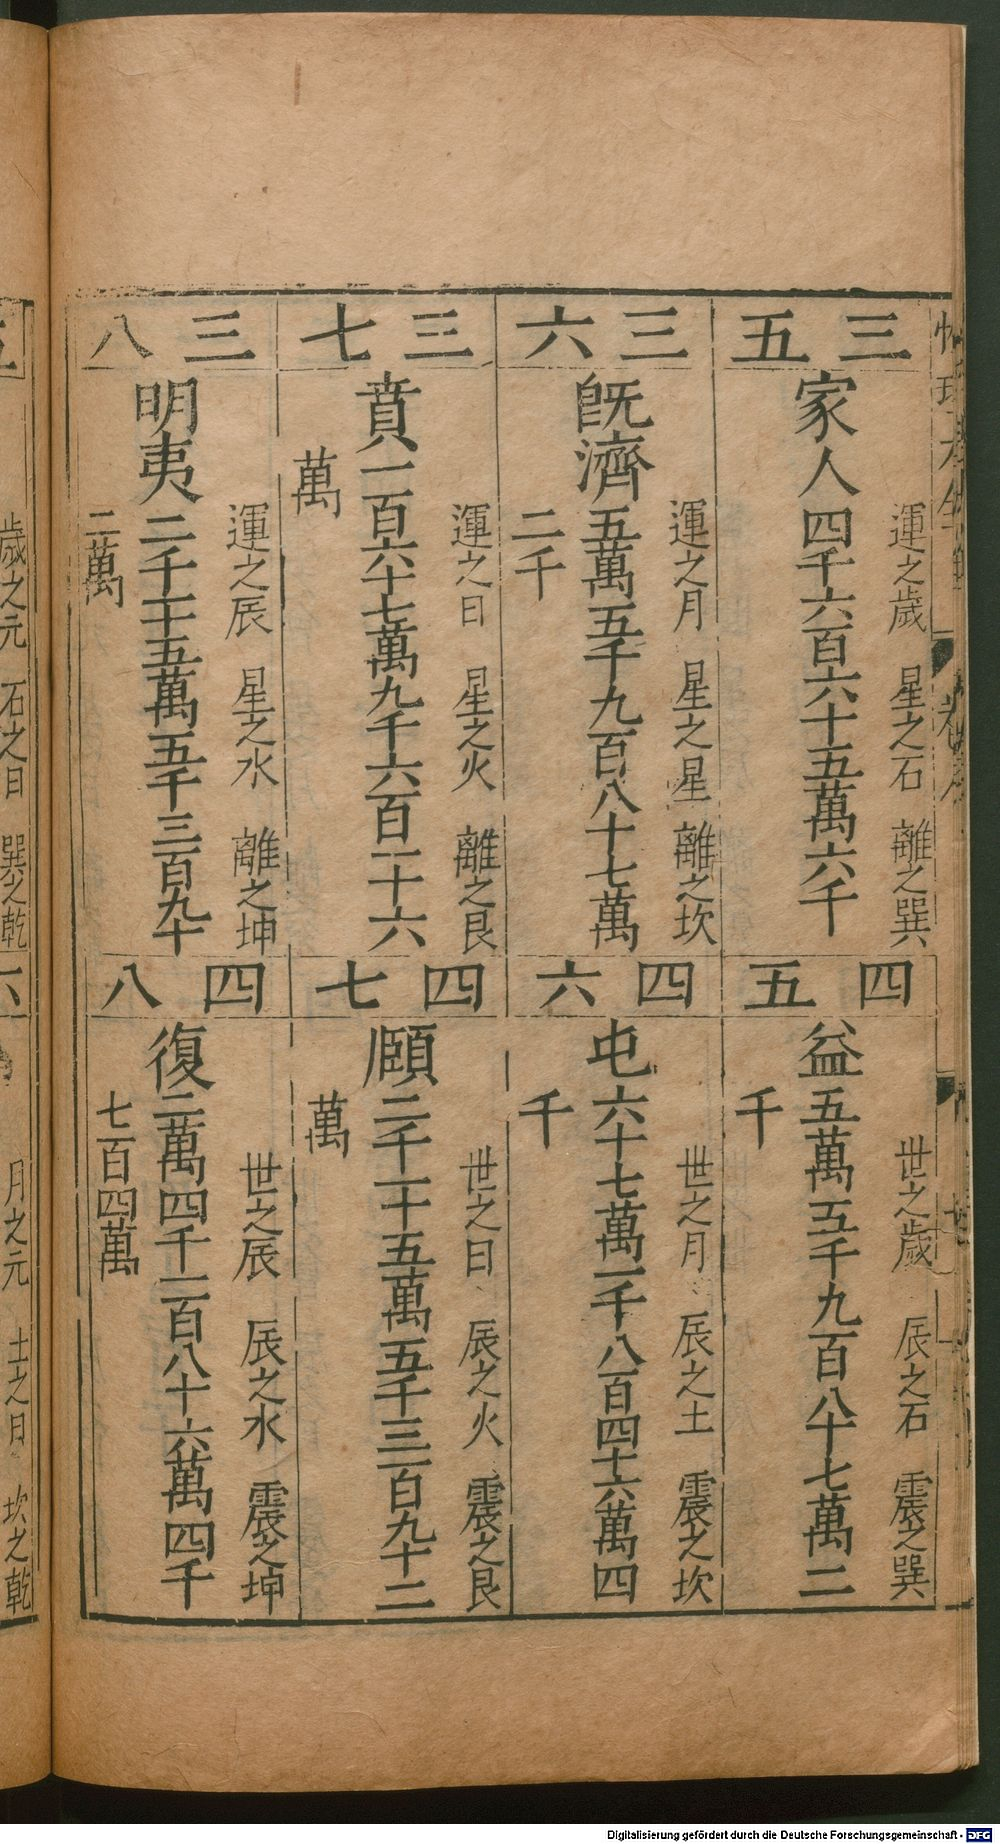 三五
運之歲 星之石 離之巽
家人四千六百六十五萬六千
三六
運之月 星之星 離之坎
既濟五萬五千九百八十七萬
二千
三七
運之日 星之火 離之艮
賁一百六十七萬九千六百一十六
萬
三八
運之辰 星之水 離之坤
明夷二千一十五萬五千三百九十
二萬
四五
世之歲 辰之石 震之巽
益五萬五千九百八十七萬二
千
四六
世之月 辰之土 震之坎
屯六十七萬一千八百四十六萬四
千
四七
世之日 辰之火 震之艮
頤二千一十五萬五千三百九十二
萬
四八
世之辰 辰之水 震之坤
復二萬四千一百八十六萬四千
七百四萬
五
歲之元 石之日 巽之乾
六
月之元 土之日 坎之乾
Digitalisierung gefördert durch die Deutsche Forschungsgemeinschaft - DFG